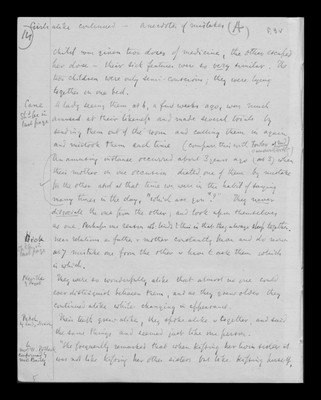 Girls alike continued – anecdote of mistakes (A)
child was given two doses of medicine, the other escaped
her dose – their sick features were so very similar. The
two children were only semi-conscious; they were lying
together in one bed.
A lady seeing them at 6, a few weeks ago, was much
amused at their likeness and made several trials by
sending them out of the room and calling them in again
and mistook them each time (compare this with
the amusing instance occurred about 3 years ago (at 3) when
their mother on one occasion dosed one of them by mistake
for the other and at that time we were in the habit of saying
many times in the day, "which are you?" They never
dissociate the one from the other, and look upon themselves
as one. Perhaps one reason is that they always sleep together.
near relations & father & mother constantly have and do even
at 7 mistake one from the other & have to ask them which
is which.
They were so wonderfully alike that almost no one could
ever distinguish between them, and as they grew older they
continued alike while changing in appearance.
Their teeth grew alike, they spoke alike & together, and said
the same things and seemed just like one person.
She frequently remarked that when kissing her twin sister it
was not like kissing her other sisters but like kissing herself,